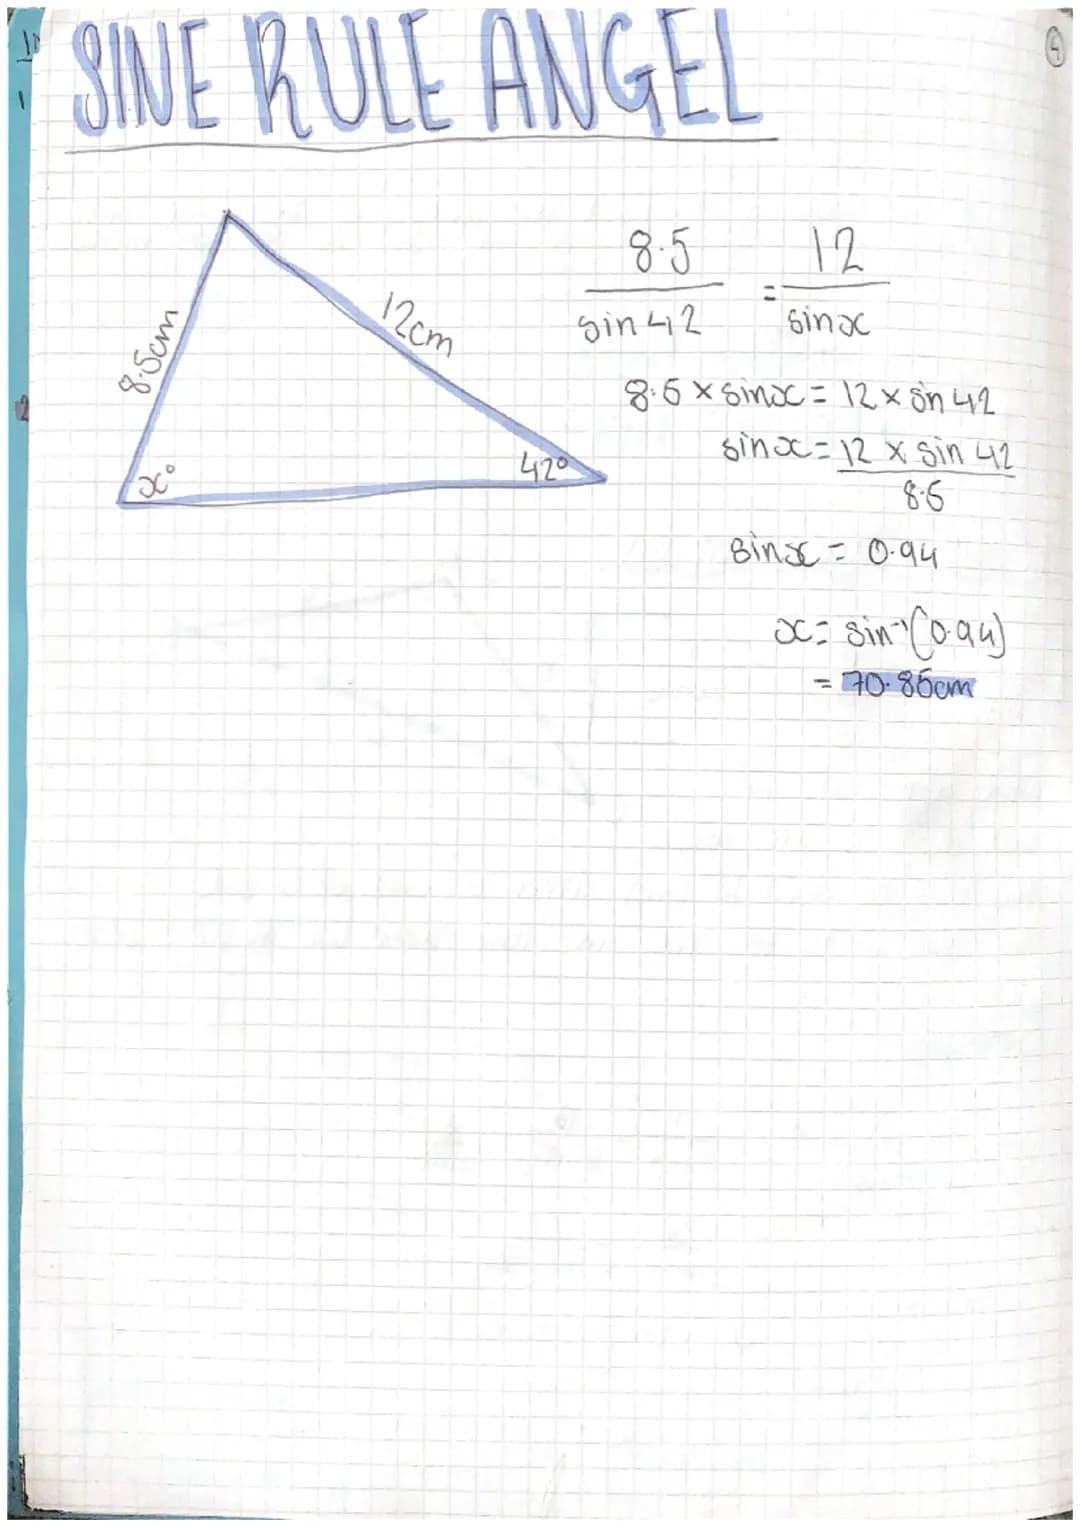 SINE RULE ANGEL
4
8.5cm
12cm
x°
42°
8.5 / sin 42 = 12 / sinx
8.5 × sinx = 12 × sin 42
sinx = 12 × sin 42 / 8.5
sinx = 0.94
x = sin⁻¹(0.94)
= 70.85cm